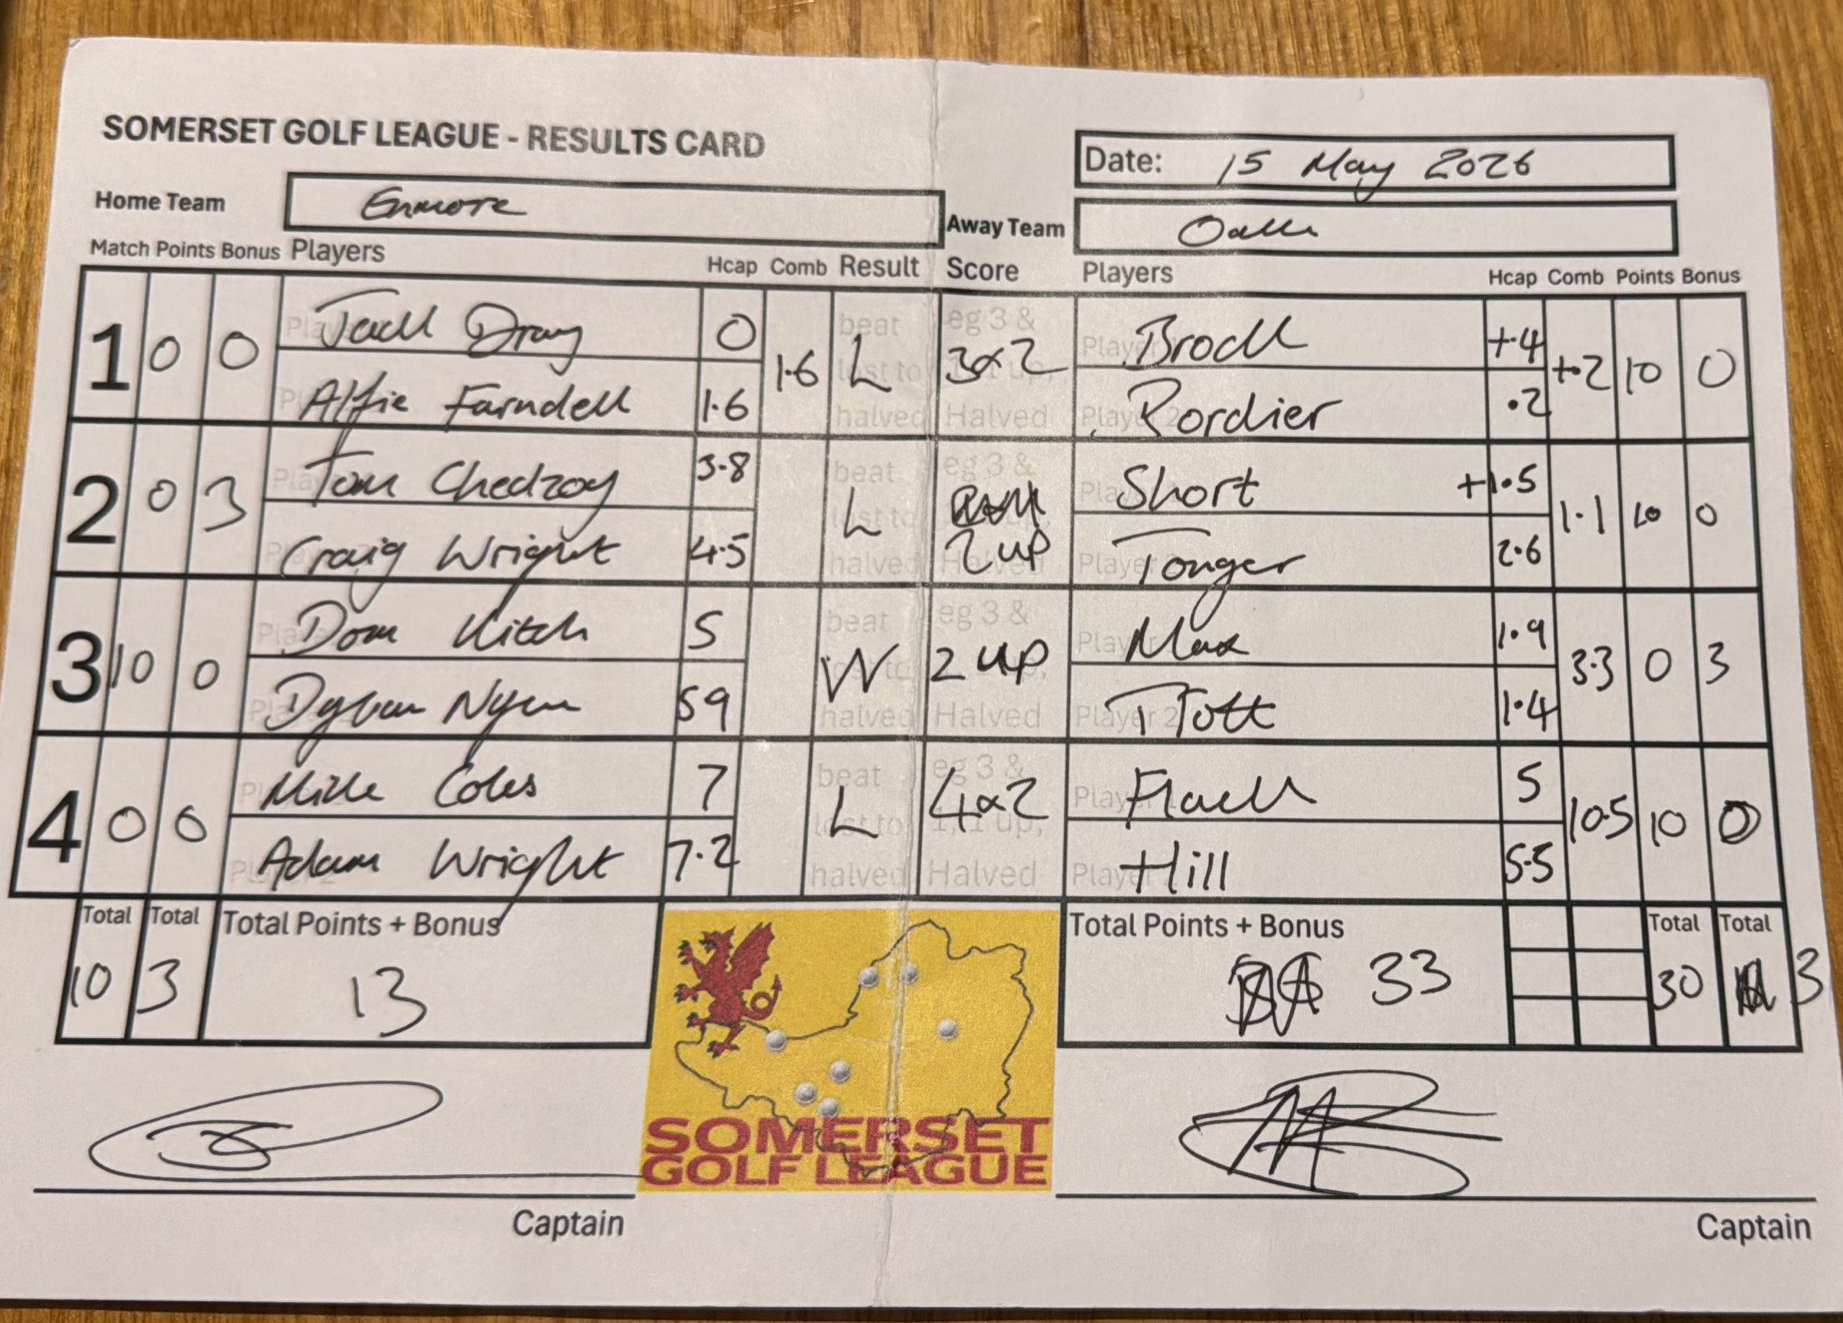 SOMERSET GOLF LEAGUE - RESULTS CARD
Date: 15 May 2026
Home Team Enmore
Away Team
Match Points Bonus Players Hcap Comb Result Score Players Hcap Comb Points Bonus
1 0 0 Jack Dray 0 1.6 L 3&2 Brock +.4 +.2 10 0
Alfie Farndell 1.6 Bordier .2
2 0 3 Tom Chedzoy 3.8 L 2 up Short +1.5 1.1 10 0
Craig Wright 4.5 Tonger 2.6
3 10 0 Dom Kitch 5 W 2 up Max 1.9 3.3 0 3
Dylan 59 Tott 1.4
4 0 0 Mike Coles 7 L 4&2 Flack 5 10.5 10 0
Adam Wright 7.2 Hill 5.5
Total Total Total Points + Bonus Total Points + Bonus Total Total
10 3 13 33 30 3
SOMERSET
GOLF LEAGUE
Captain Captain